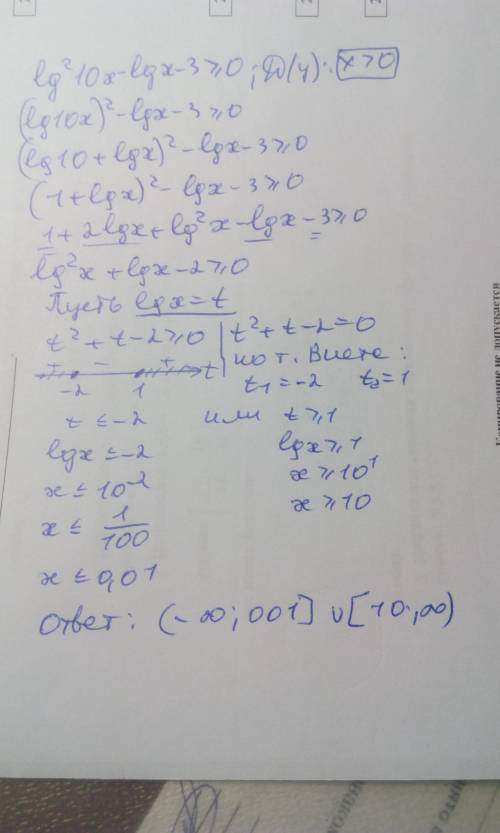 lg²10x-lgx-3⩾0; D(y): x>0
(lg10x)²-lgx-3⩾0
(lg10+lgx)²-lgx-3⩾0
(1+lgx)²-lgx-3⩾0
1+2lgx+lg²x-lgx-3⩾0
lg²x+lgx-2⩾0
Пусть lgx=t
t²+t-2⩾0 | t²+t-2=0
+ - + t по т. Виета:
-2 1 t₁=-2 t₂=1
t≤-2 или t⩾1
lgx≤-2 lgx⩾1
x≤10⁻² x⩾10¹
x≤1/100 x⩾10
x≤0,01
Ответ: (-∞;001]∪[10;∞)